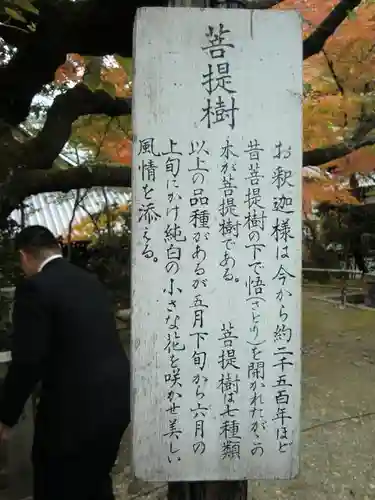 菩提樹
お釈迦様は今から約二千五百年ほど
昔菩提樹の下で悟(さとり)を開かれたがこの
木が菩提樹である。 菩提樹は七種類
以上の品種があるが五月下旬から六月の
上旬にかけ純白の小さな花を咲かせ美しい
風情を添える。